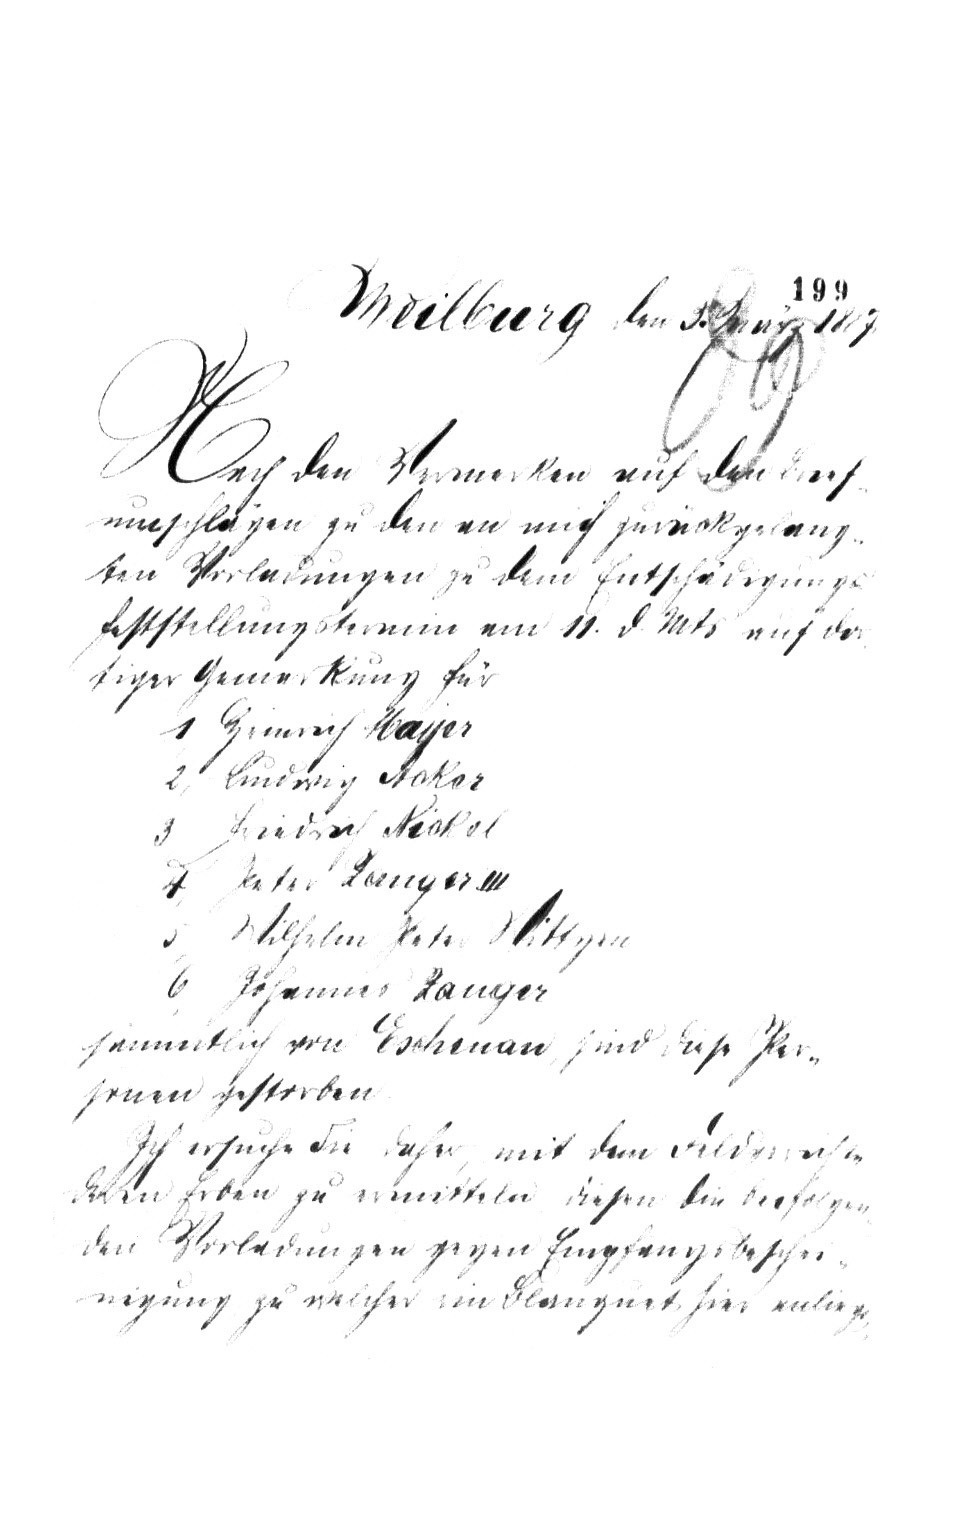 199
Weilburg den 5. März 1887
Nach den Vermerken auf den Brief-
umschlägen zu den an mich zurückgelang-
ten Vorladungen zu dem Entschädigungs
feststellungstermin am 11. d. Mts auf dor
tiger Gemarkung für
1 Heinrich Mayer
2, Ludwig Acker
3 Friedrich Nickel
4, Peter Zanger III
5, Wilhelm Peter
6 Johannes Zanger
sämmtlich von Eschenau, sind diese Per-
sonen gestorben.
Ich ersuche Sie daher, mit dem Feldgericht
deren Erben zu ermitteln, diesen die beifolgen
den Vorladungen gegen Empfangsbeschei-
nigung zu welcher ein Blanquet hier anliegt,